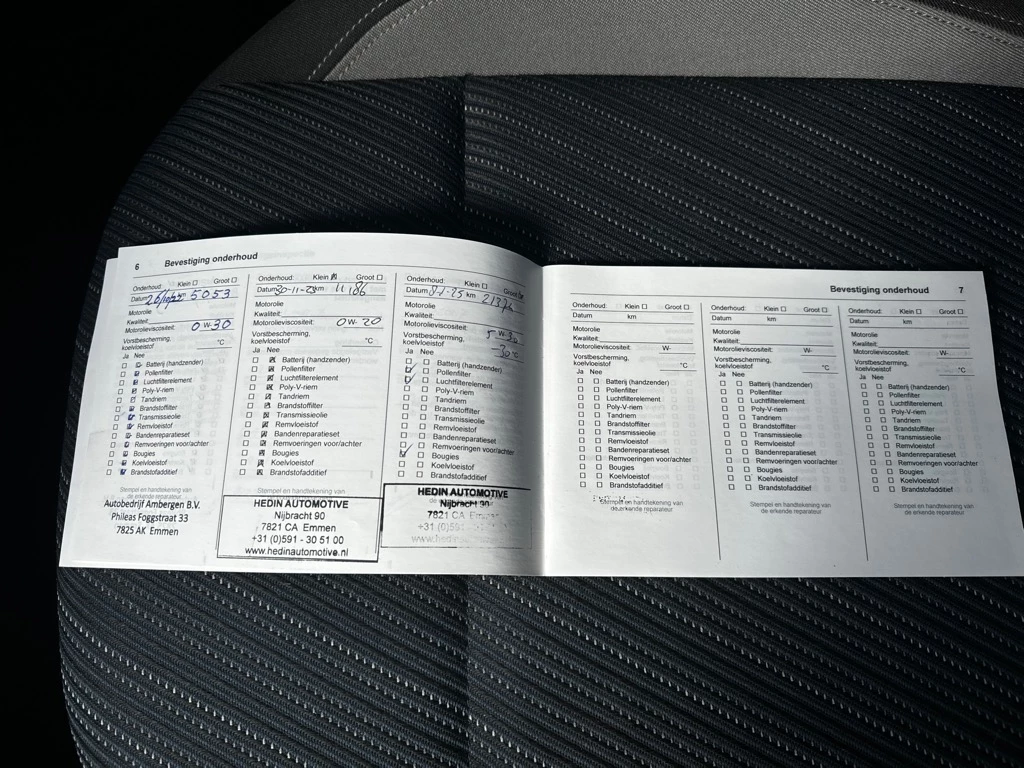 6 Bevestiging onderhoud
Onderhoud: Klein Groot
Datum km 5053
Motorolie
Kwaliteit:
Motorolieviscositeit: 0 W-30
Vorstbescherming,
koelvloeistof °C
Ja Nee
Batterij (handzender)
Pollenfilter
Luchtfilterelement
Poly-V-riem
Tandriem
Brandstoffilter
Transmissieolie
Remvloeistof
Bandenreparatieset
Remvoeringen voor/achter
Bougies
Koelvloeistof
Brandstofadditief
Stempel en handtekening van
Autobedrijf Ambergen B.V.
Phileas Foggstraat 33
7825 AK Emmen
Onderhoud: Klein Groot
Datum 30-11-23 km 11186
Motorolie
Kwaliteit:
Motorolieviscositeit: 0 W-20
Vorstbescherming,
koelvloeistof °C
Ja Nee
Batterij (handzender)
Pollenfilter
Luchtfilterelement
Poly-V-riem
Tandriem
Brandstoffilter
Transmissieolie
Remvloeistof
Bandenreparatieset
Remvoeringen voor/achter
Bougies
Koelvloeistof
Brandstofadditief
Stempel en handtekening van
HEDIN AUTOMOTIVE
Nijbracht 90
7821 CA Emmen
+31 (0)591 - 30 51 00
www.hedinautomotive.nl
Onderhoud: Klein Groot
Datum km
Motorolie
Kwaliteit:
Motorolieviscositeit: 5 W-30
Vorstbescherming,
koelvloeistof -30 °C
Ja Nee
Batterij (handzender)
Pollenfilter
Luchtfilterelement
Poly-V-riem
Tandriem
Brandstoffilter
Transmissieolie
Remvloeistof
Bandenreparatieset
Remvoeringen voor/achter
Bougies
Koelvloeistof
Brandstofadditief
HEDIN AUTOMOTIVE
Nijbracht 90
7821 CA Emmen
+31 (0)591
Bevestiging onderhoud 7
Onderhoud: Klein Groot
Datum km
Motorolie
Kwaliteit:
Motorolieviscositeit: W-
Vorstbescherming,
koelvloeistof °C
Ja Nee
Batterij (handzender)
Pollenfilter
Luchtfilterelement
Poly-V-riem
Tandriem
Brandstoffilter
Transmissieolie
Remvloeistof
Bandenreparatieset
Remvoeringen voor/achter
Bougies
Koelvloeistof
Brandstofadditief
Stempel en handtekening van
de erkende reparateur
Onderhoud: Klein Groot
Datum km
Motorolie
Kwaliteit:
Motorolieviscositeit: W-
Vorstbescherming,
koelvloeistof °C
Ja Nee
Batterij (handzender)
Pollenfilter
Luchtfilterelement
Poly-V-riem
Tandriem
Brandstoffilter
Transmissieolie
Remvloeistof
Bandenreparatieset
Remvoeringen voor/achter
Bougies
Koelvloeistof
Brandstofadditief
Stempel en handtekening van
de erkende reparateur
Onderhoud: Klein Groot
Datum km
Motorolie
Kwaliteit:
Motorolieviscositeit: W-
Vorstbescherming,
koelvloeistof °C
Ja Nee
Batterij (handzender)
Pollenfilter
Luchtfilterelement
Poly-V-riem
Tandriem
Brandstoffilter
Transmissieolie
Remvloeistof
Bandenreparatieset
Remvoeringen voor/achter
Bougies
Koelvloeistof
Brandstofadditief
Stempel en handtekening van
de erkende reparateur